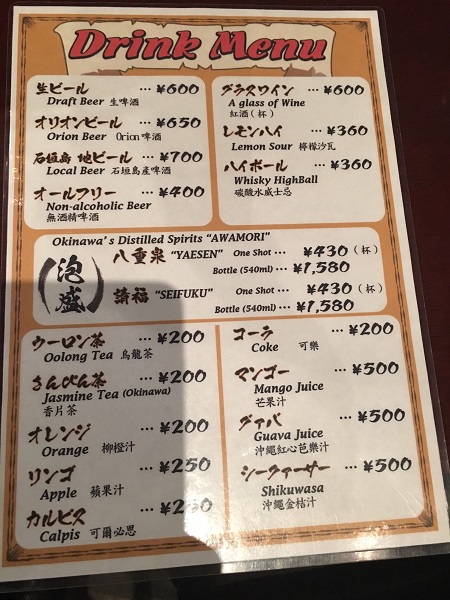 Drink Menu
生ビール … ¥600
Draft Beer 生啤酒
オリオンビール … ¥650
Orion Beer Orion啤酒
石垣島 地ビール … ¥700
Local Beer 石垣島產啤酒
オールフリー … ¥400
Non-alcoholic Beer
無酒精啤酒
グラスワイン … ¥600
A glass of Wine
紅酒(杯)
レモンハイ … ¥360
Lemon Sour 檸檬沙瓦
ハイボール … ¥360
Whisky HighBall
碳酸水威士忌
Okinawa's Distilled Spirits "AWAMORI"
泡盛
八重泉 "YAESEN" One Shot… ¥430(杯)
Bottle (540ml)… ¥1,580
請福 "SEIFUKU" One Shot… ¥430(杯)
Bottle (540ml)… ¥1,580
ウーロン茶 … ¥200
Oolong Tea 烏龍茶
さんぴん茶 … ¥200
Jasmine Tea (Okinawa)
香片茶
オレンジ … ¥200
Orange 柳橙汁
リンゴ … ¥250
Apple 蘋果汁
カルピス … ¥250
Calpis 可爾必思
コーラ … ¥200
Coke 可樂
マンゴー … ¥500
Mango Juice
芒果汁
グァバ … ¥500
Guava Juice
沖縄紅心芭樂汁
シークァーサー … ¥500
Shikuwasa
沖縄金桔汁